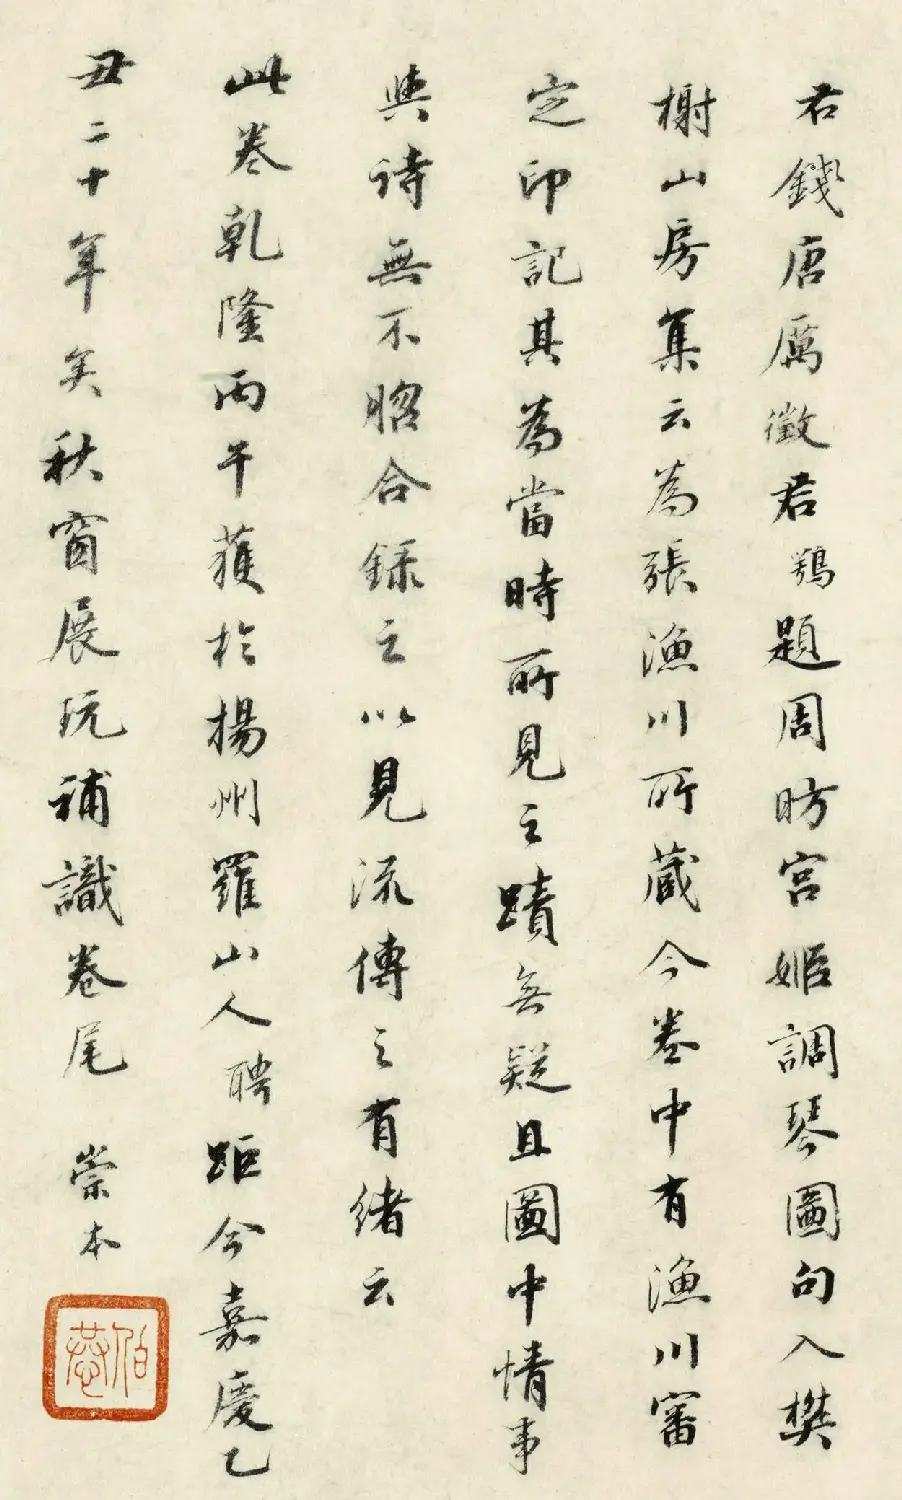 右錢唐厲徵君鶚題周昉宮姬調琴圖句入樊
榭山房集云為張漁川所藏今卷中有漁川審
定印記其為當時所見之蹟無疑且圖中情事
與詩無不脗合錄之以見流傳之有緒云
此卷乾隆丙午獲於揚州羅山人聘距今嘉慶乙
丑二十年矣秋窗展玩補識卷尾 崇本